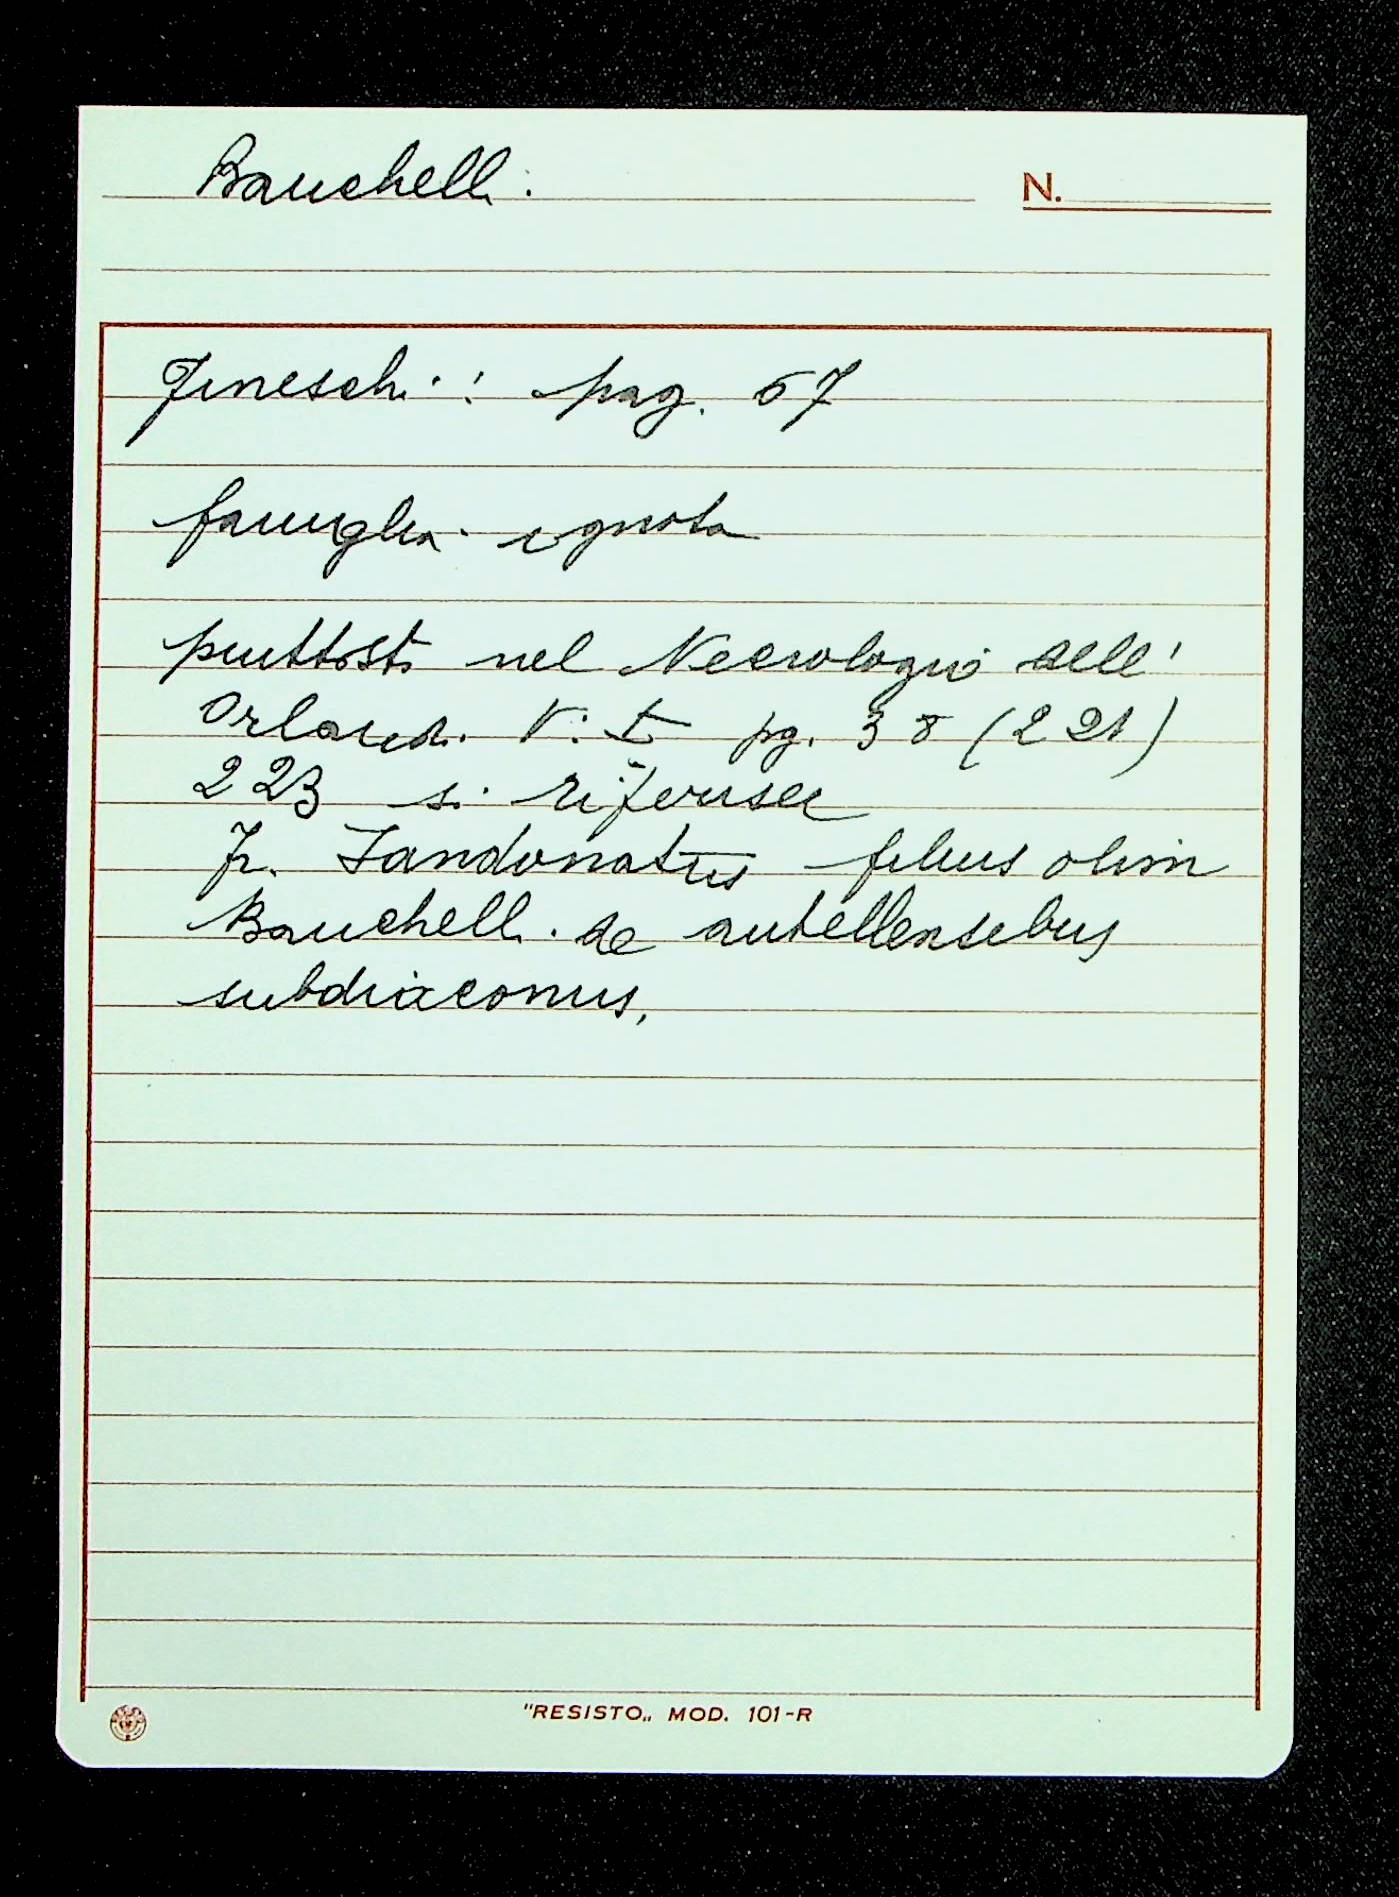 Banchelli
N.
Fineschi: pag. 57
famiglia ignota
piuttosto nel Necrologio dell'
Orlandi V: I pg. 38 (221)
223 si riferisce
Fr. Zandonatus filius olim
Banchelli de antellensibus
subdiaconus,
"RESISTO„ MOD. 101-R